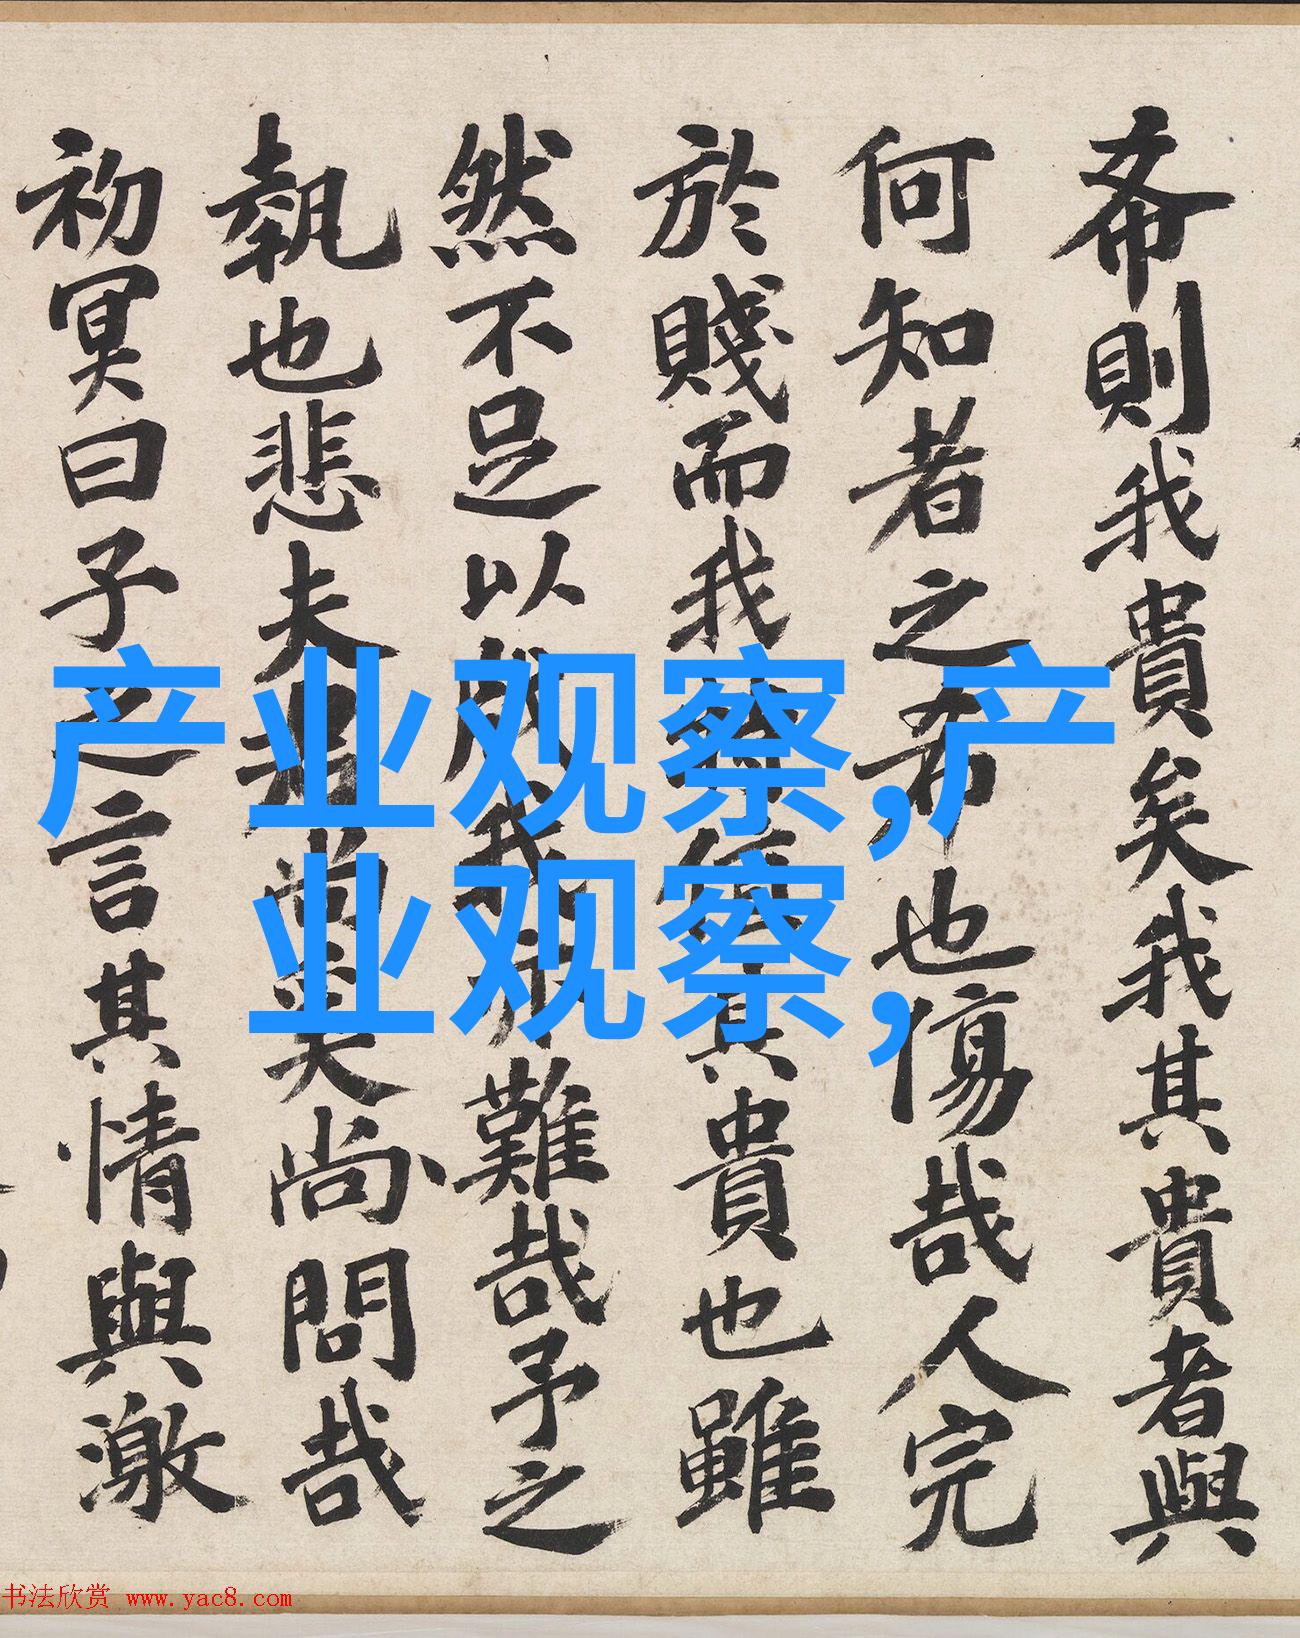 希則我貴矣我其貴者與
何知者之希也傷哉人完
於賤而我其貴也雖
然不足以我難哉予之
執也悲夫尚奚尚問哉
初冥曰子之言其情與激
产业观察,产
业观察,
书法欣赏 www.yac8.com